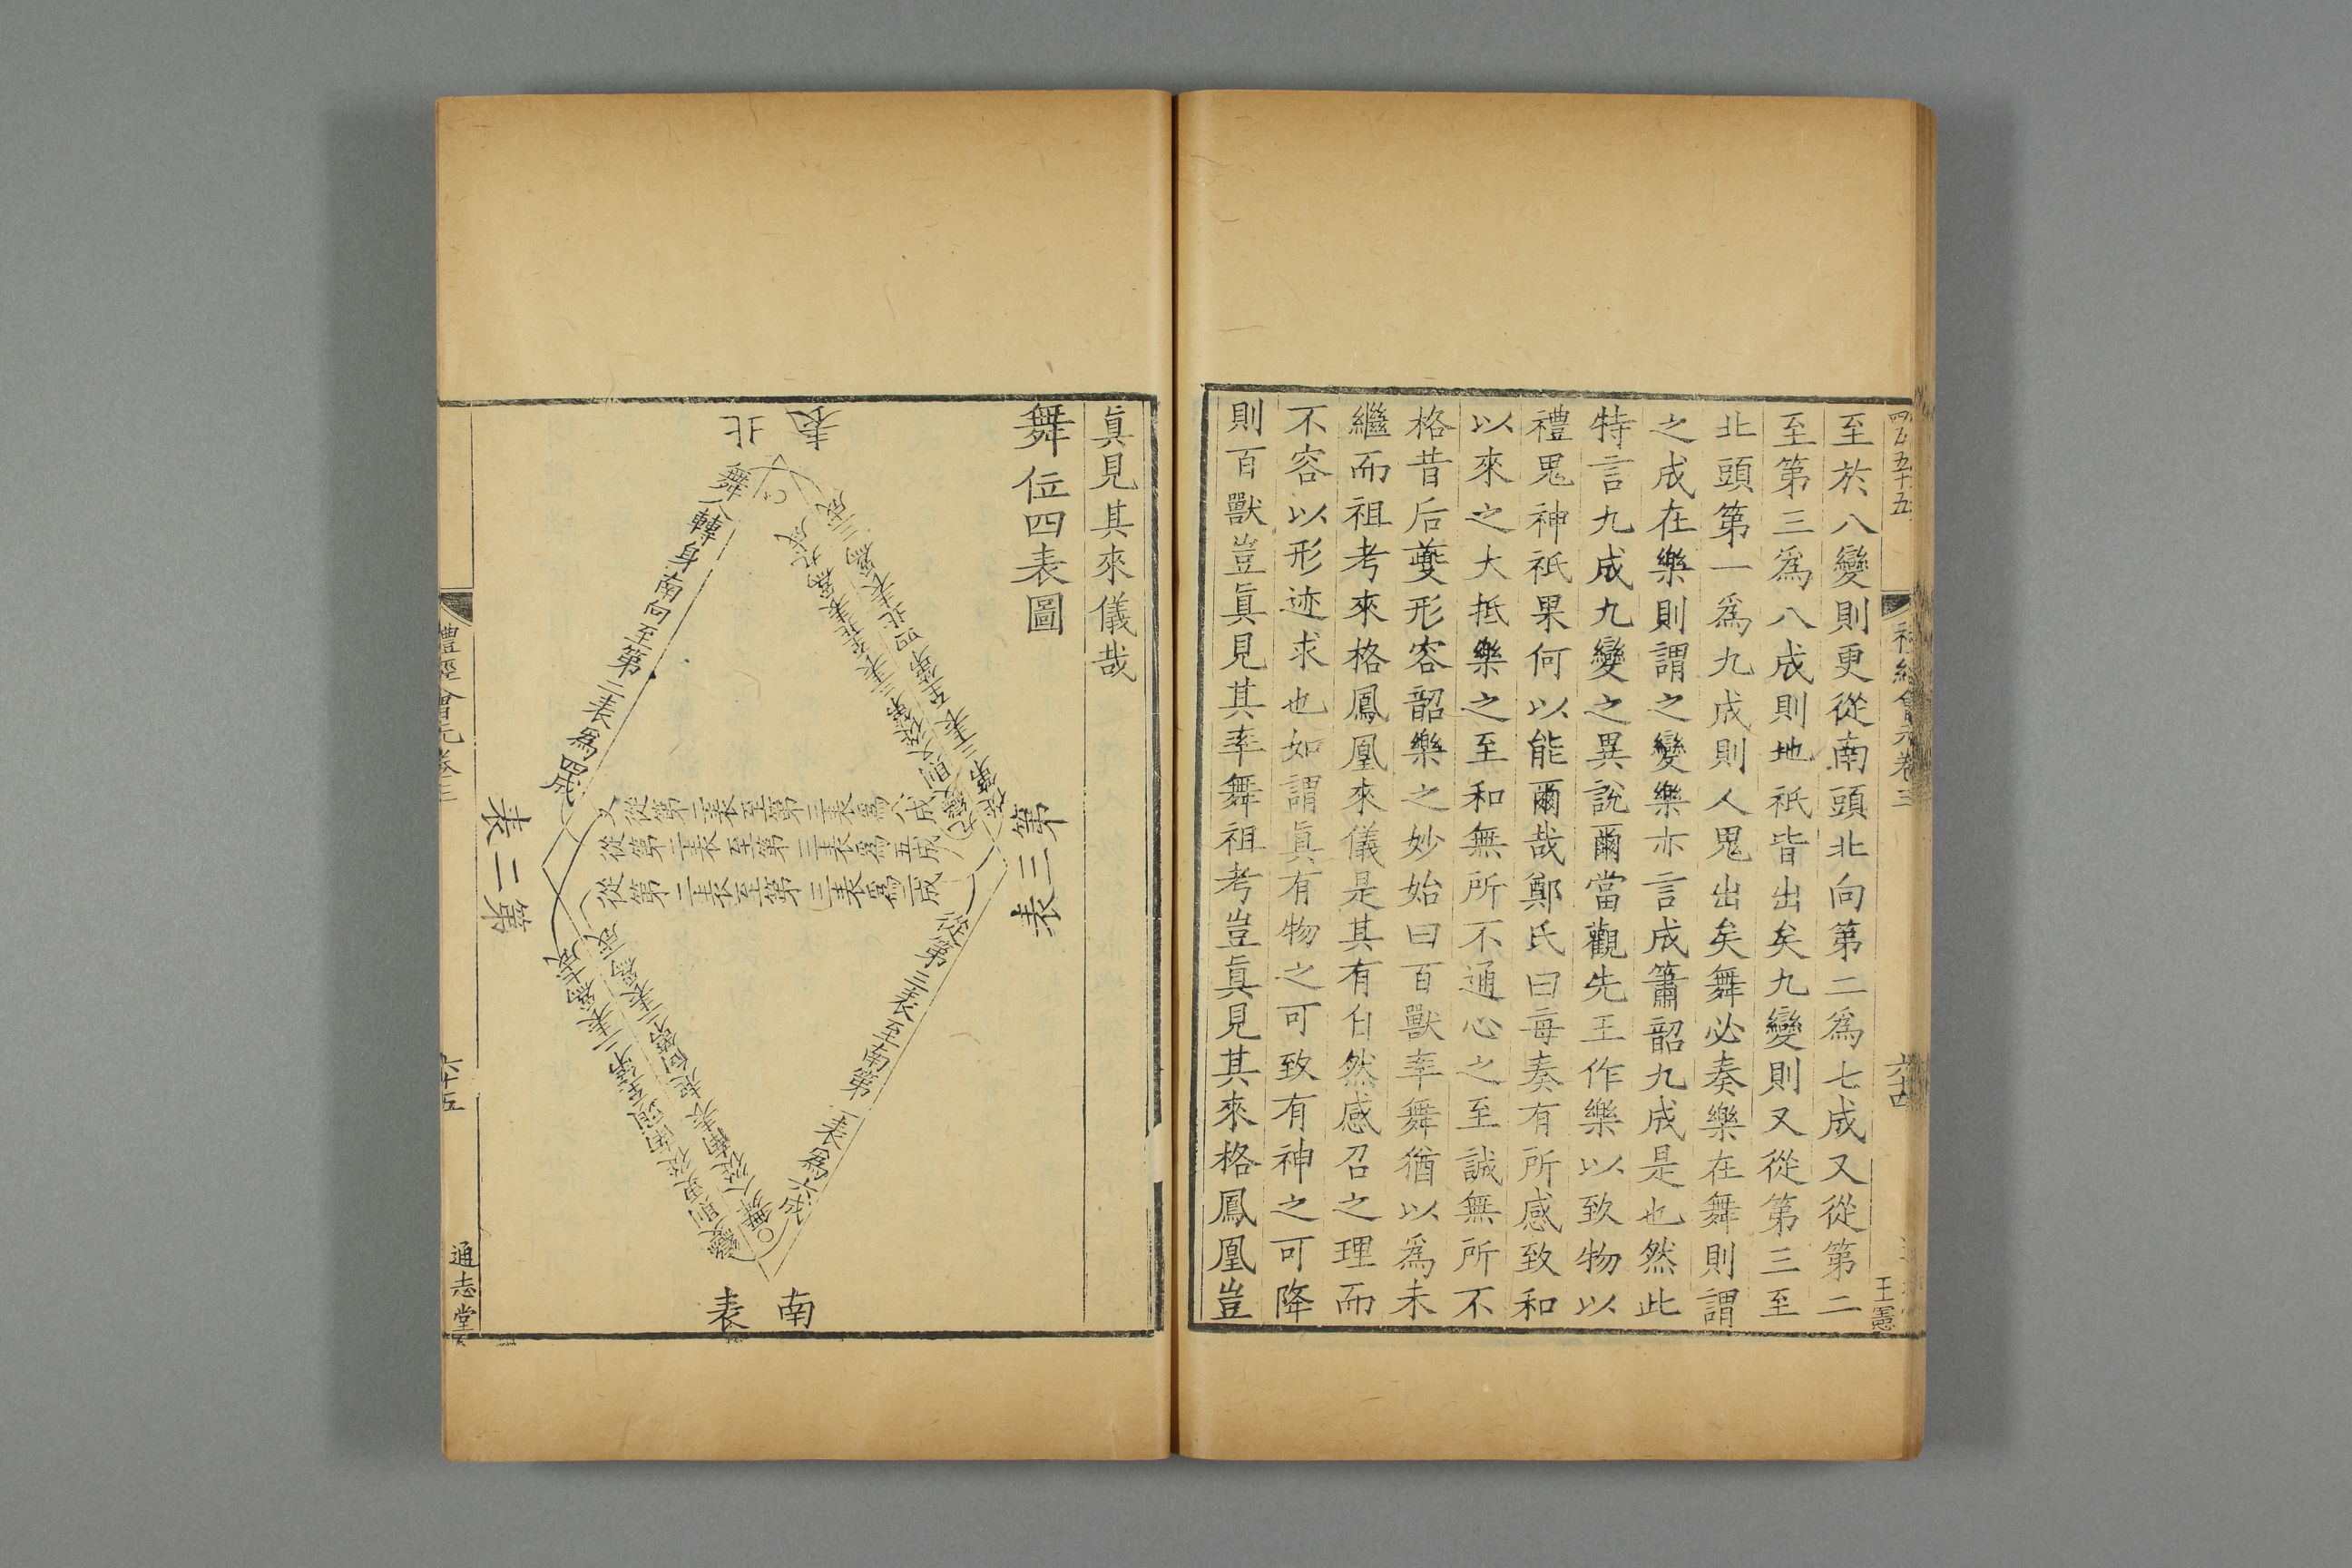 四百五十五
至於八變則更從南頭北向第二為七成又從第二
至第三為八成則地祇皆出矣九變則又從第三至
北頭第一為九成則人鬼出矣舞必奏樂在舞則謂
之成在樂則謂之變樂亦言成簫韶九成是也然此
特言九成九變之異說爾當觀先王作樂以致物以
禮鬼神祇果何以能爾哉鄭氏曰每奏有所感致和
以來之大抵樂之至和無所不通心之至誠無所不
格昔后夔形容韶樂之妙始曰百獸率舞猶以為未
繼而祖考來格鳳凰來儀是其有自然感召之理而
不容以形迹求也如謂眞有物之可致有神之可降
則百獸豈眞見其率舞祖考豈眞見其來格鳳凰豈
六十四
王憲
眞見其來儀哉
舞位四表圖
北表
第三表
第二表
南表
舞人轉身南向至第二表為四成
從第三表至北四表為三成
又從第二表至第三表為八成
從第二表至第三表為五成
從第二表至第三表為二成
從第三表至南第一表為六成
禮經會元卷三
六十五
通志堂